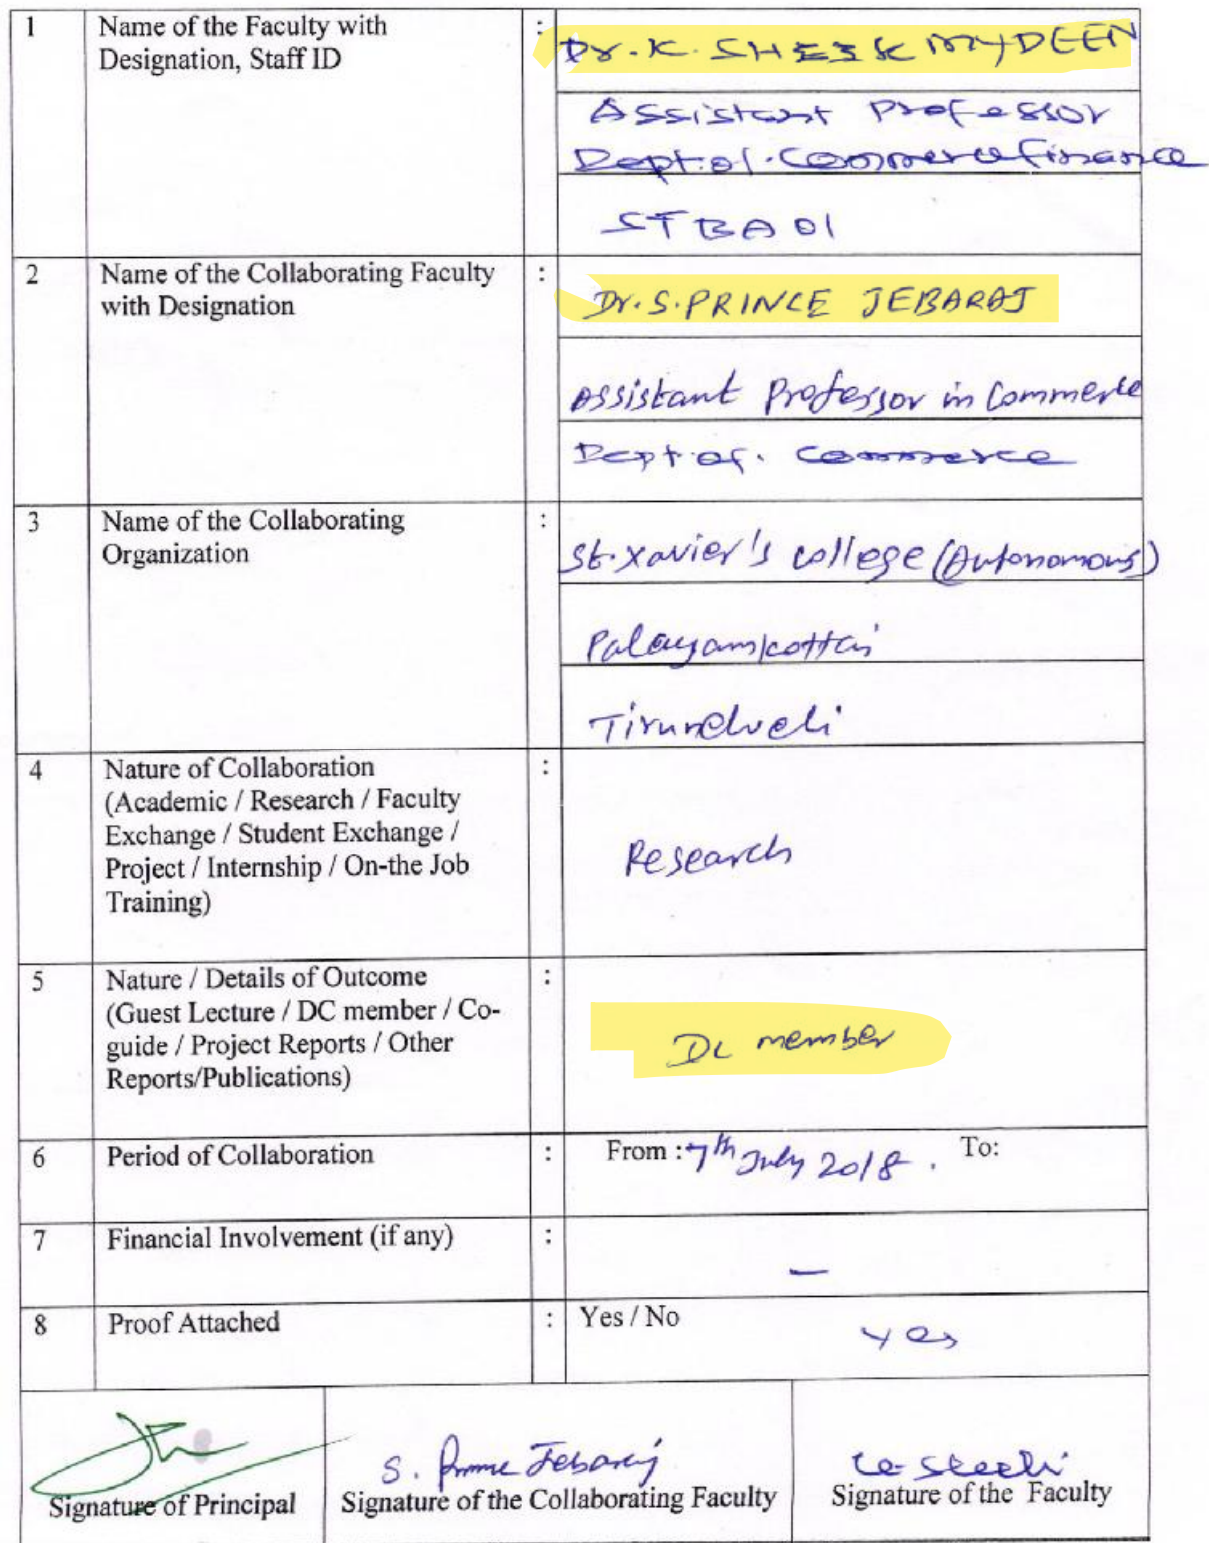 1 Name of the Faculty with : Dr. K. SHEIK MYDEEN
Designation, Staff ID
Assistant Professor
Dept. of. Commerce Finance
STBA01
2 Name of the Collaborating Faculty : Dr. S. PRINCE JEBARAJ
with Designation
Assistant Professor in Commerce
Dept of. Commerce
3 Name of the Collaborating :
Organization
St. Xavier's College (Autonomous)
Palayamkottai
Tirunelveli
4 Nature of Collaboration :
(Academic / Research / Faculty
Exchange / Student Exchange /
Project / Internship / On-the Job
Training)
Research
5 Nature / Details of Outcome :
(Guest Lecture / DC member / Co-
guide / Project Reports / Other
Reports/Publications)
DC member
6 Period of Collaboration : From : 7th July 2018. To:
7 Financial Involvement (if any) : –
8 Proof Attached : Yes / No yes
S. Prince Jebaraj
Signature of Principal Signature of the Collaborating Faculty Signature of the Faculty